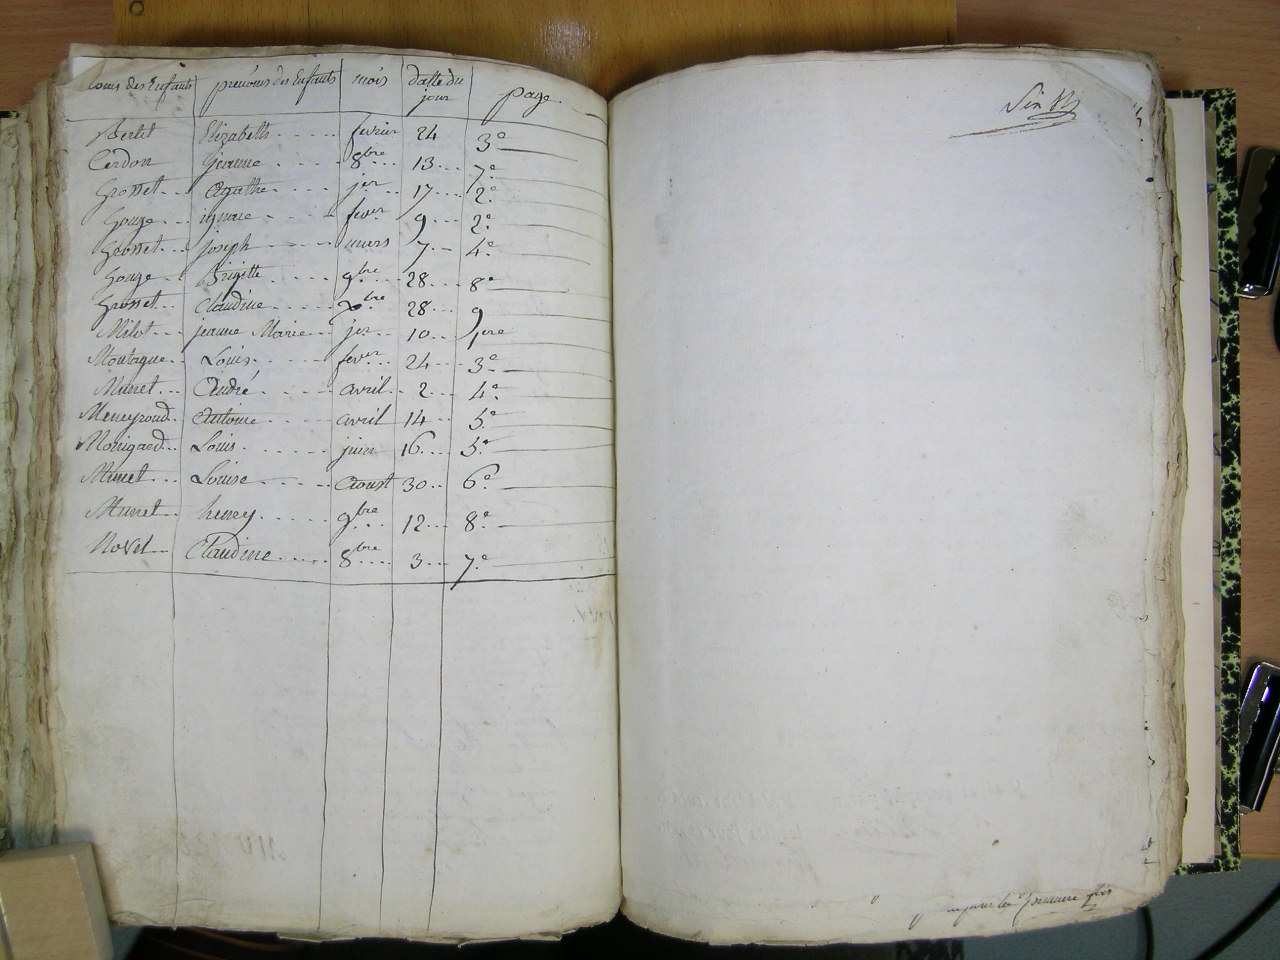 noms des Enfants prenoms des Enfants mois datte du jour page
Bertet Elizabeth fevrier 24 3e
Cerdon jeanne 8bre 13 7e
Grosset Agathe jer 17 2e
Gouze ignace fevr 9 2e
Grosset joseph mars 7 4e
Gouze Brigitte 9bre 28 8e
Grosset Claudine xbre 28 9
Milot jeanne Marie jer 10 1ere
Montagne Louis fevr 24 3e
Munet André avril 2 4e
Meneyroud Antoine avril 14 5e
Monigaed Louis juin 16 5e
Munet Louise Aoust 30 6e
Munet henry 9bre 12 8e
Novel Claudine 8bre 3 7e